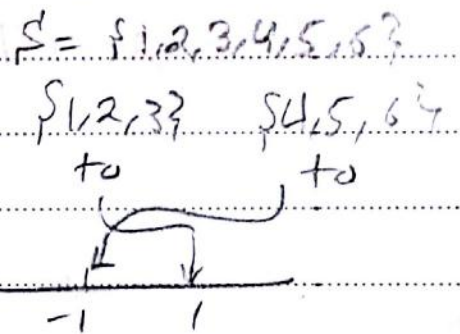 S = {1,2,3,4,5,6}
{1,2,3} {4,5,6}
to to
-1 1